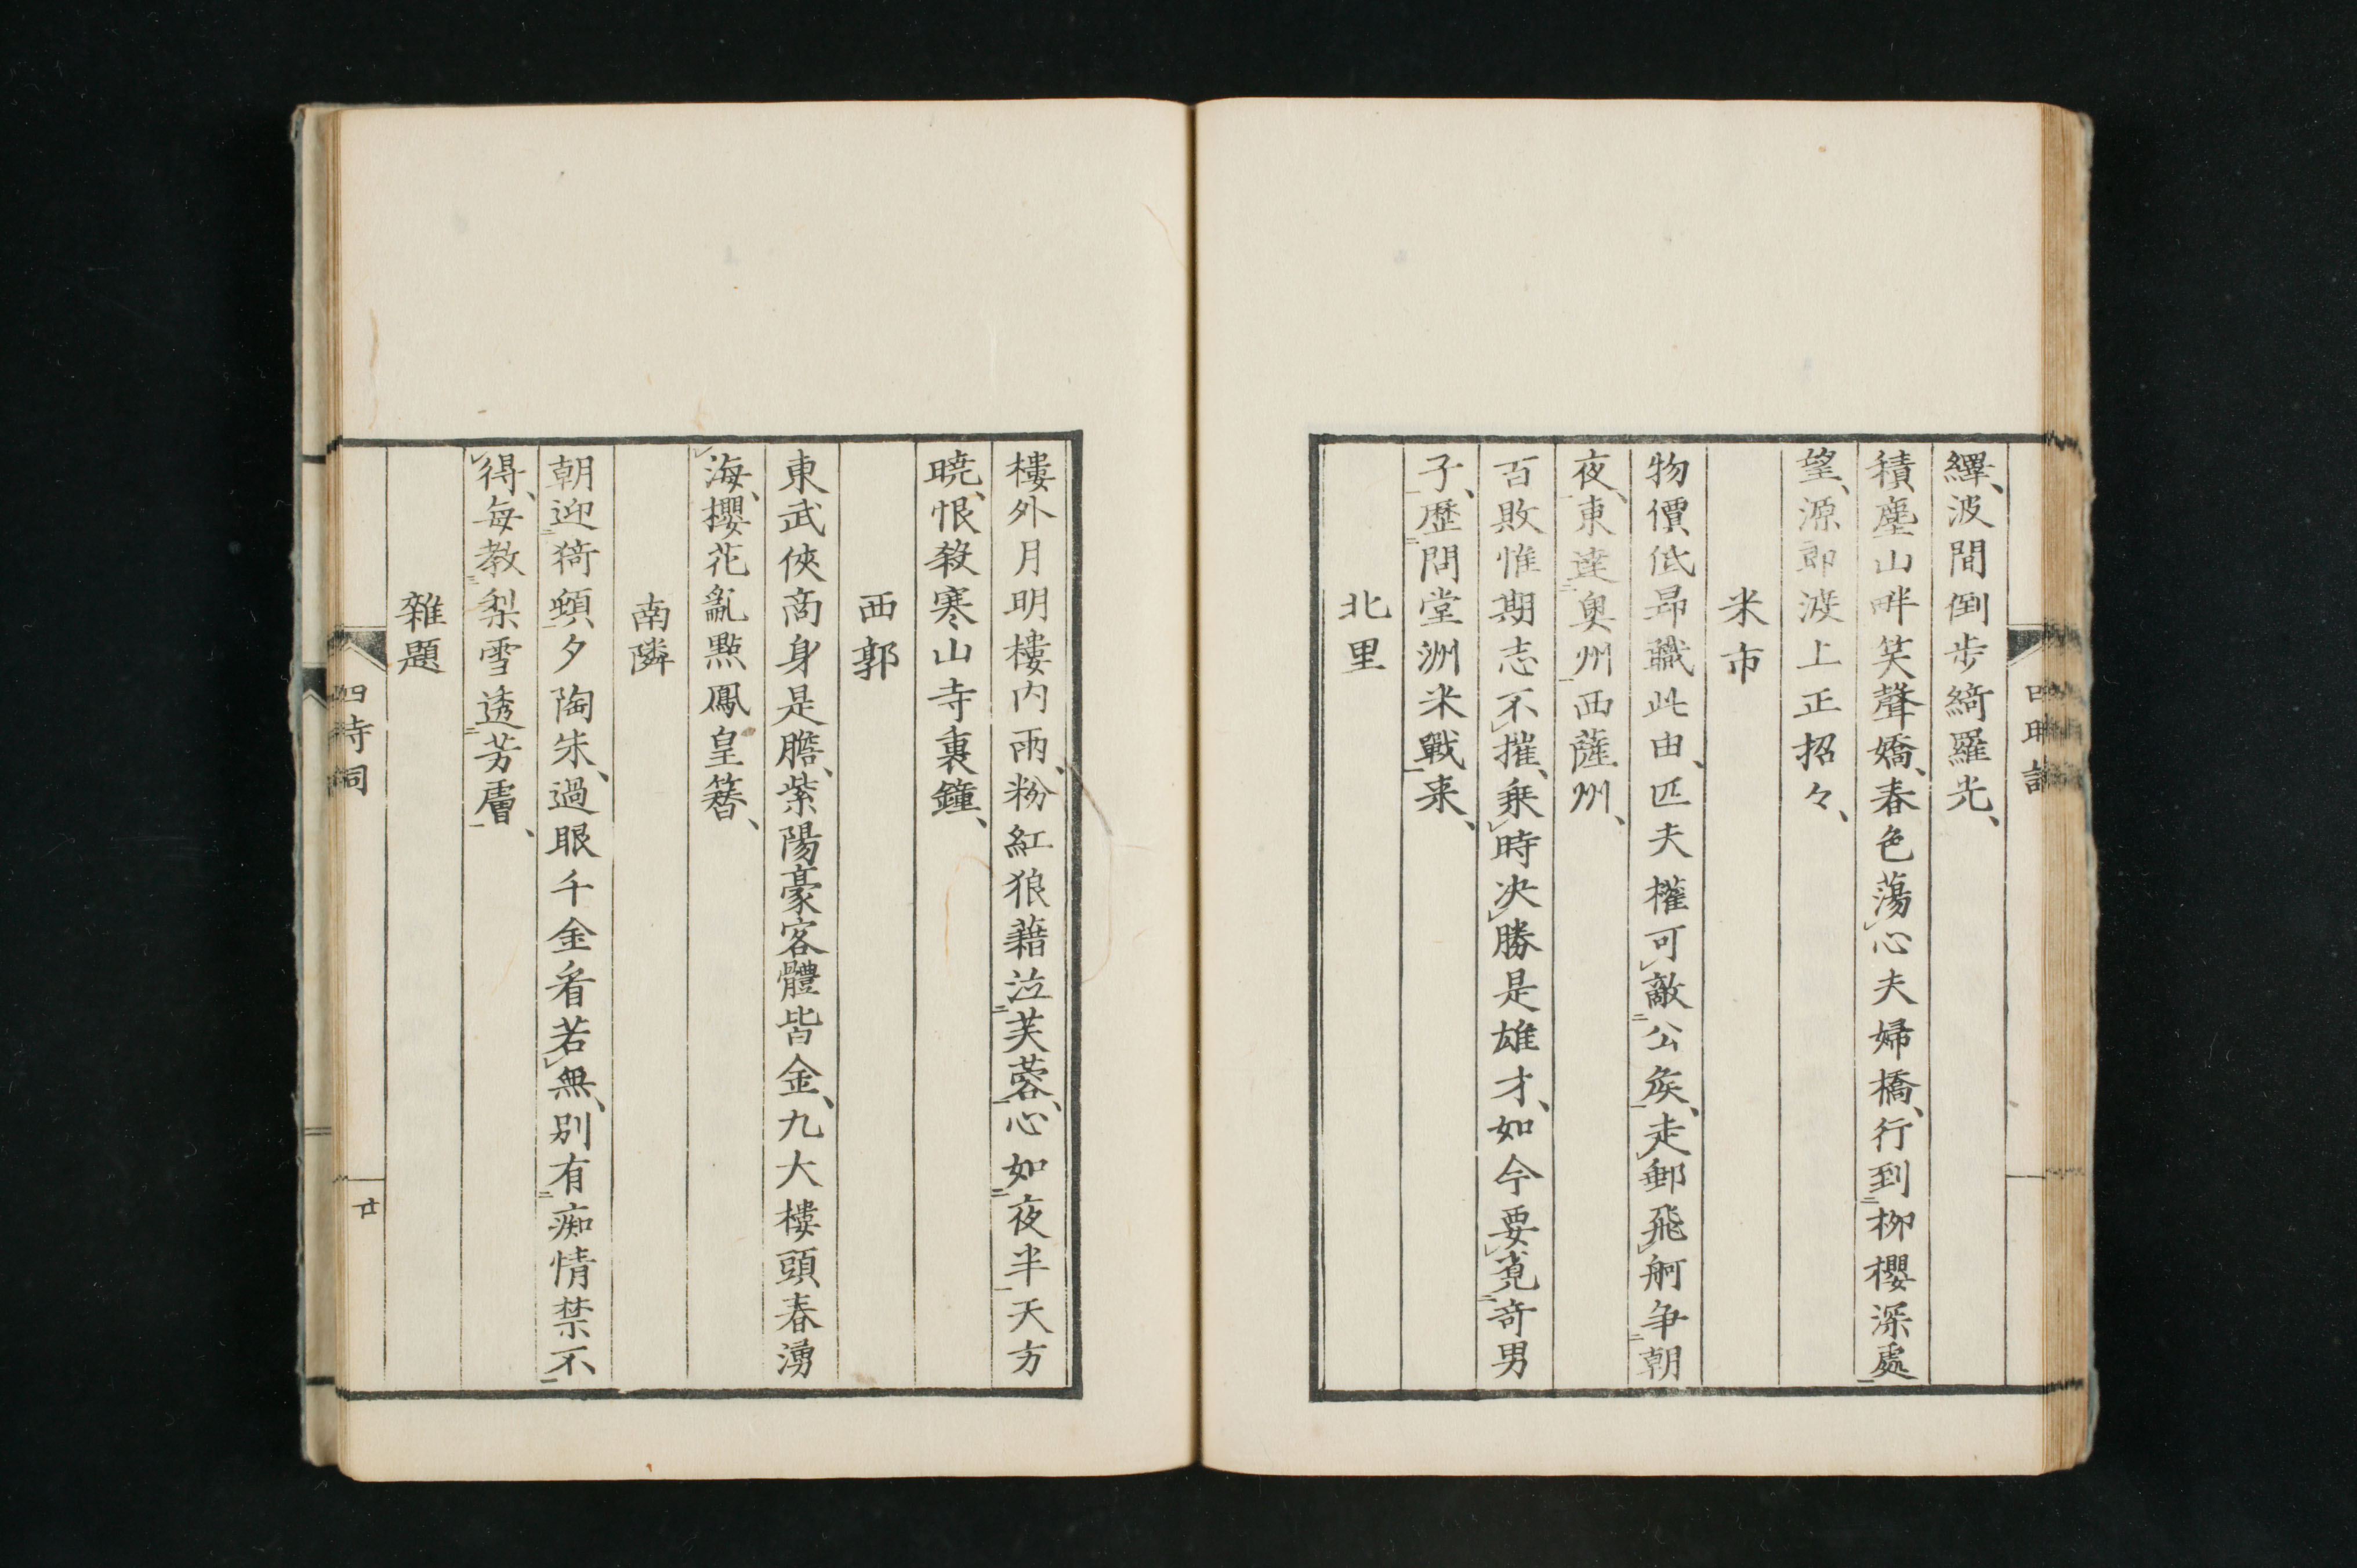 繹、波間倒步綺羅光、
積塵山畔笑聲嬌、春色蕩心夫婦橋、行到柳櫻深處
望、源郎渡上正招々、
米市
物價低昂職此由、匹夫權可敵公矦、走郵飛舸争朝
夜、東達奥州西薩州、
百敗惟期志不摧、乗時决勝是雄才、如今要覓奇男
子、歴問堂洲米戰来、
北里
樓外月明樓内雨、粉紅狼藉泣芙蓉、心如夜半天方
曉、恨殺寒山寺裏鐘、
西郭
東武俠商身是膽、紫陽豪客體皆金、九大樓頭春湧
海、櫻花亂點鳳皇簪、
南隣
朝迎猗頓夕陶朱、過眼千金看若無、別有痴情禁不
得、每教梨雪透芳膚、
雜題
四時詞
廿